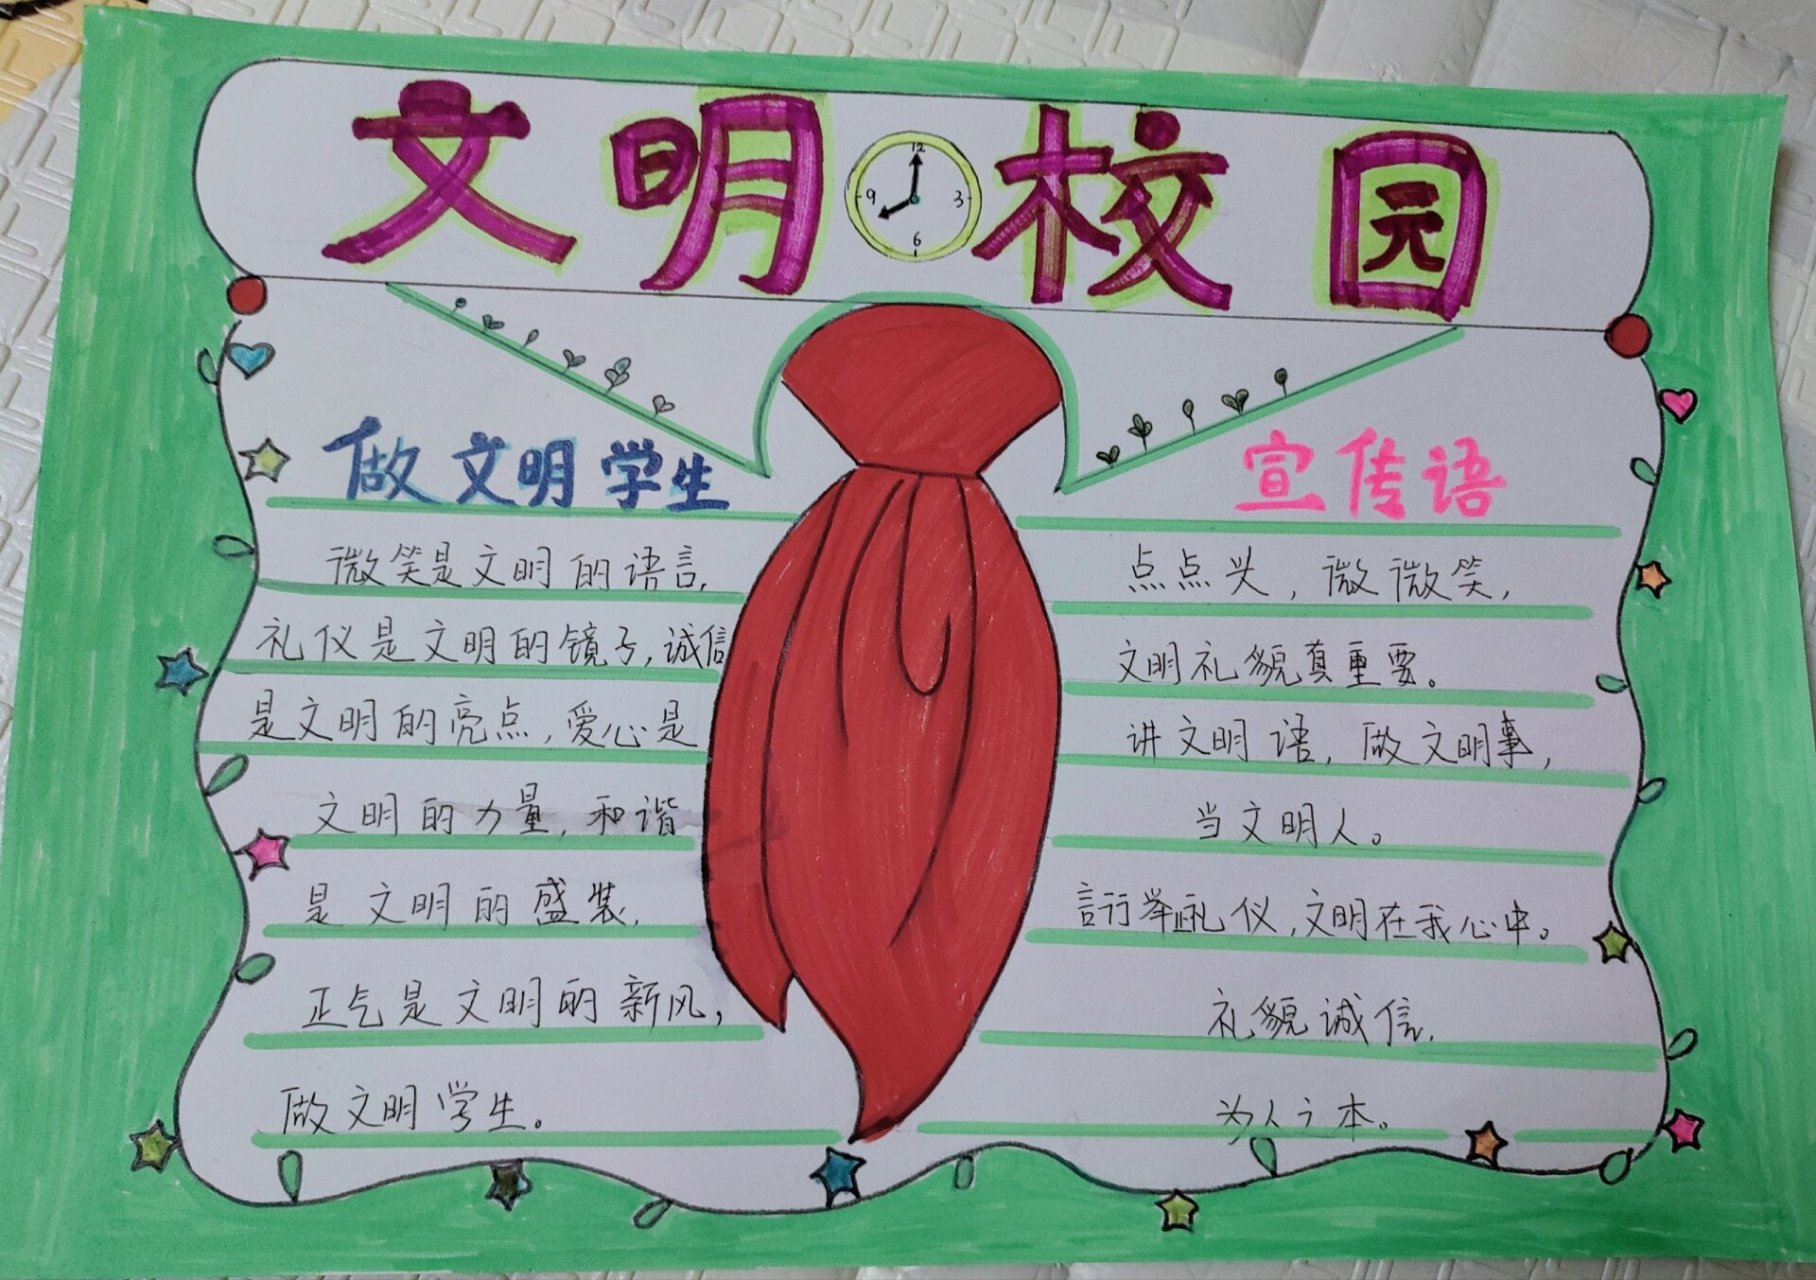 文明校园
12
9 3
6
做文明学生
微笑是文明的语言,
礼仪是文明的镜子,诚信
是文明的亮点,爱心是
文明的力量,和谐
是文明的盛装,
正气是文明的新风,
做文明学生。
宣传语
点点头,微微笑,
文明礼貌真重要。
讲文明语,做文明事,
当文明人。
言行举止礼仪,文明在我心中。
礼貌诚信,
为人之本。